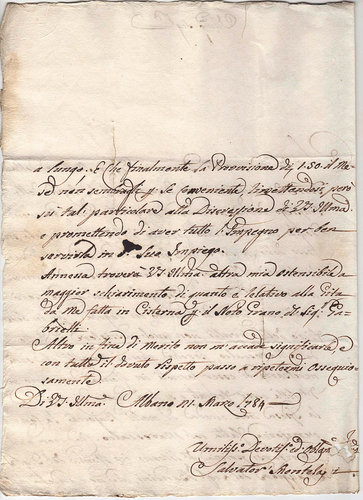 a lungo. E che finalmente la Provisione di 1.50. il Me=
se non sembrasse p se conveniente, rimettendosi però
su tal particolare alla Discrezione di V.S. Illma
e promettendo di aver tutto l'Impegno per ben
servirla in d.o Suo Impiego.
Annessa troverà V.S. Illma altra mia ostensibile a
maggior schiarimento di quanto è relativo alla Gita
da me fatta in Cisterna p il Noto Grano de Sig.i Ga=
brielli.
Altro in fine di merito non m'accade significarle, e
con tutto il dovuto rispetto passo a ripetermi Ossequio=
samente
Di V.S. Illma Albano 21. Marzo 1784
Umiliss.o Devotiss.o ed Obbl.mo
Salvator